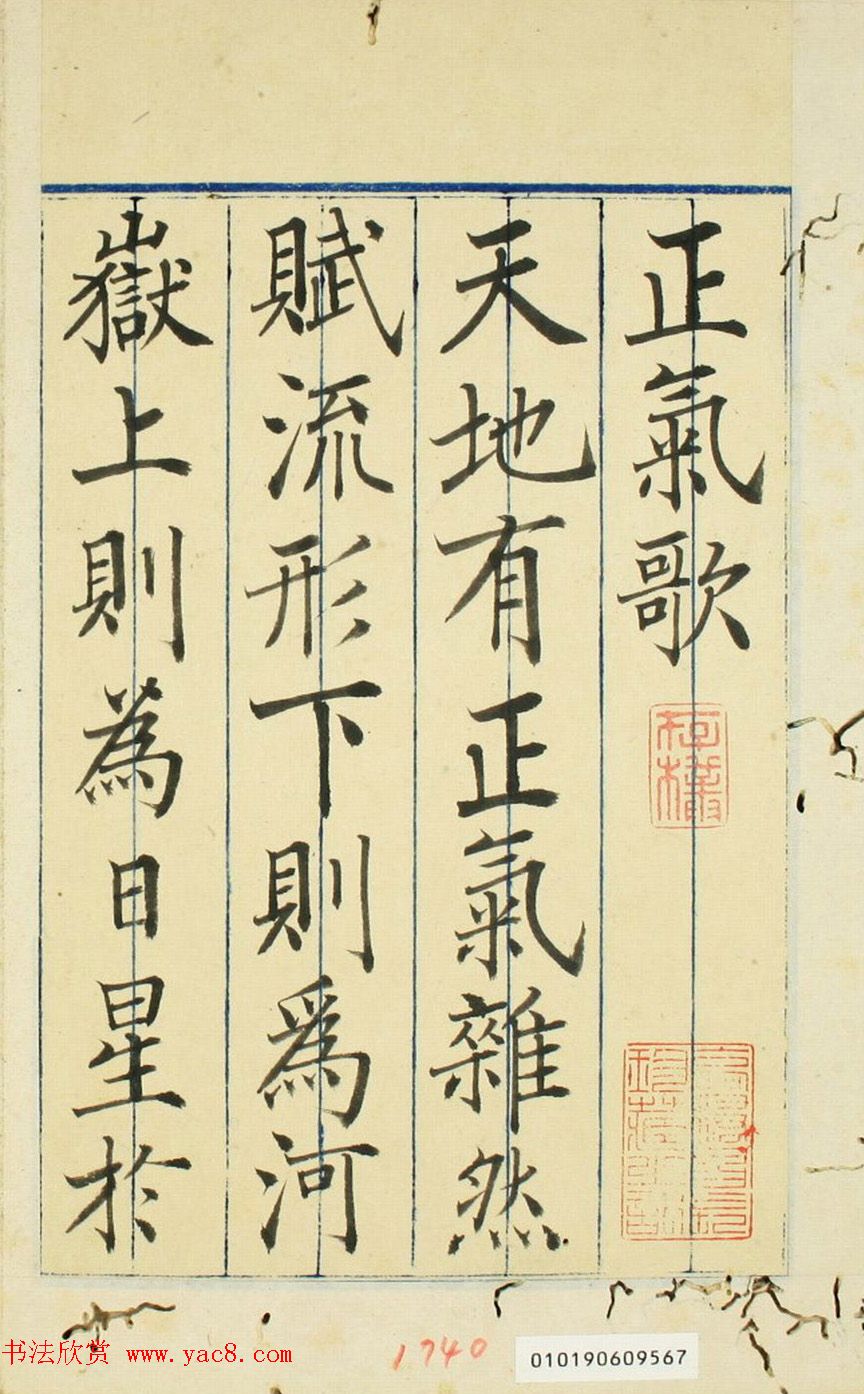 正氣歌
天地有正氣雜然
賦流形下則爲河
嶽上則為日星於
书法欣赏 www.yac8.com
1740
010190609567